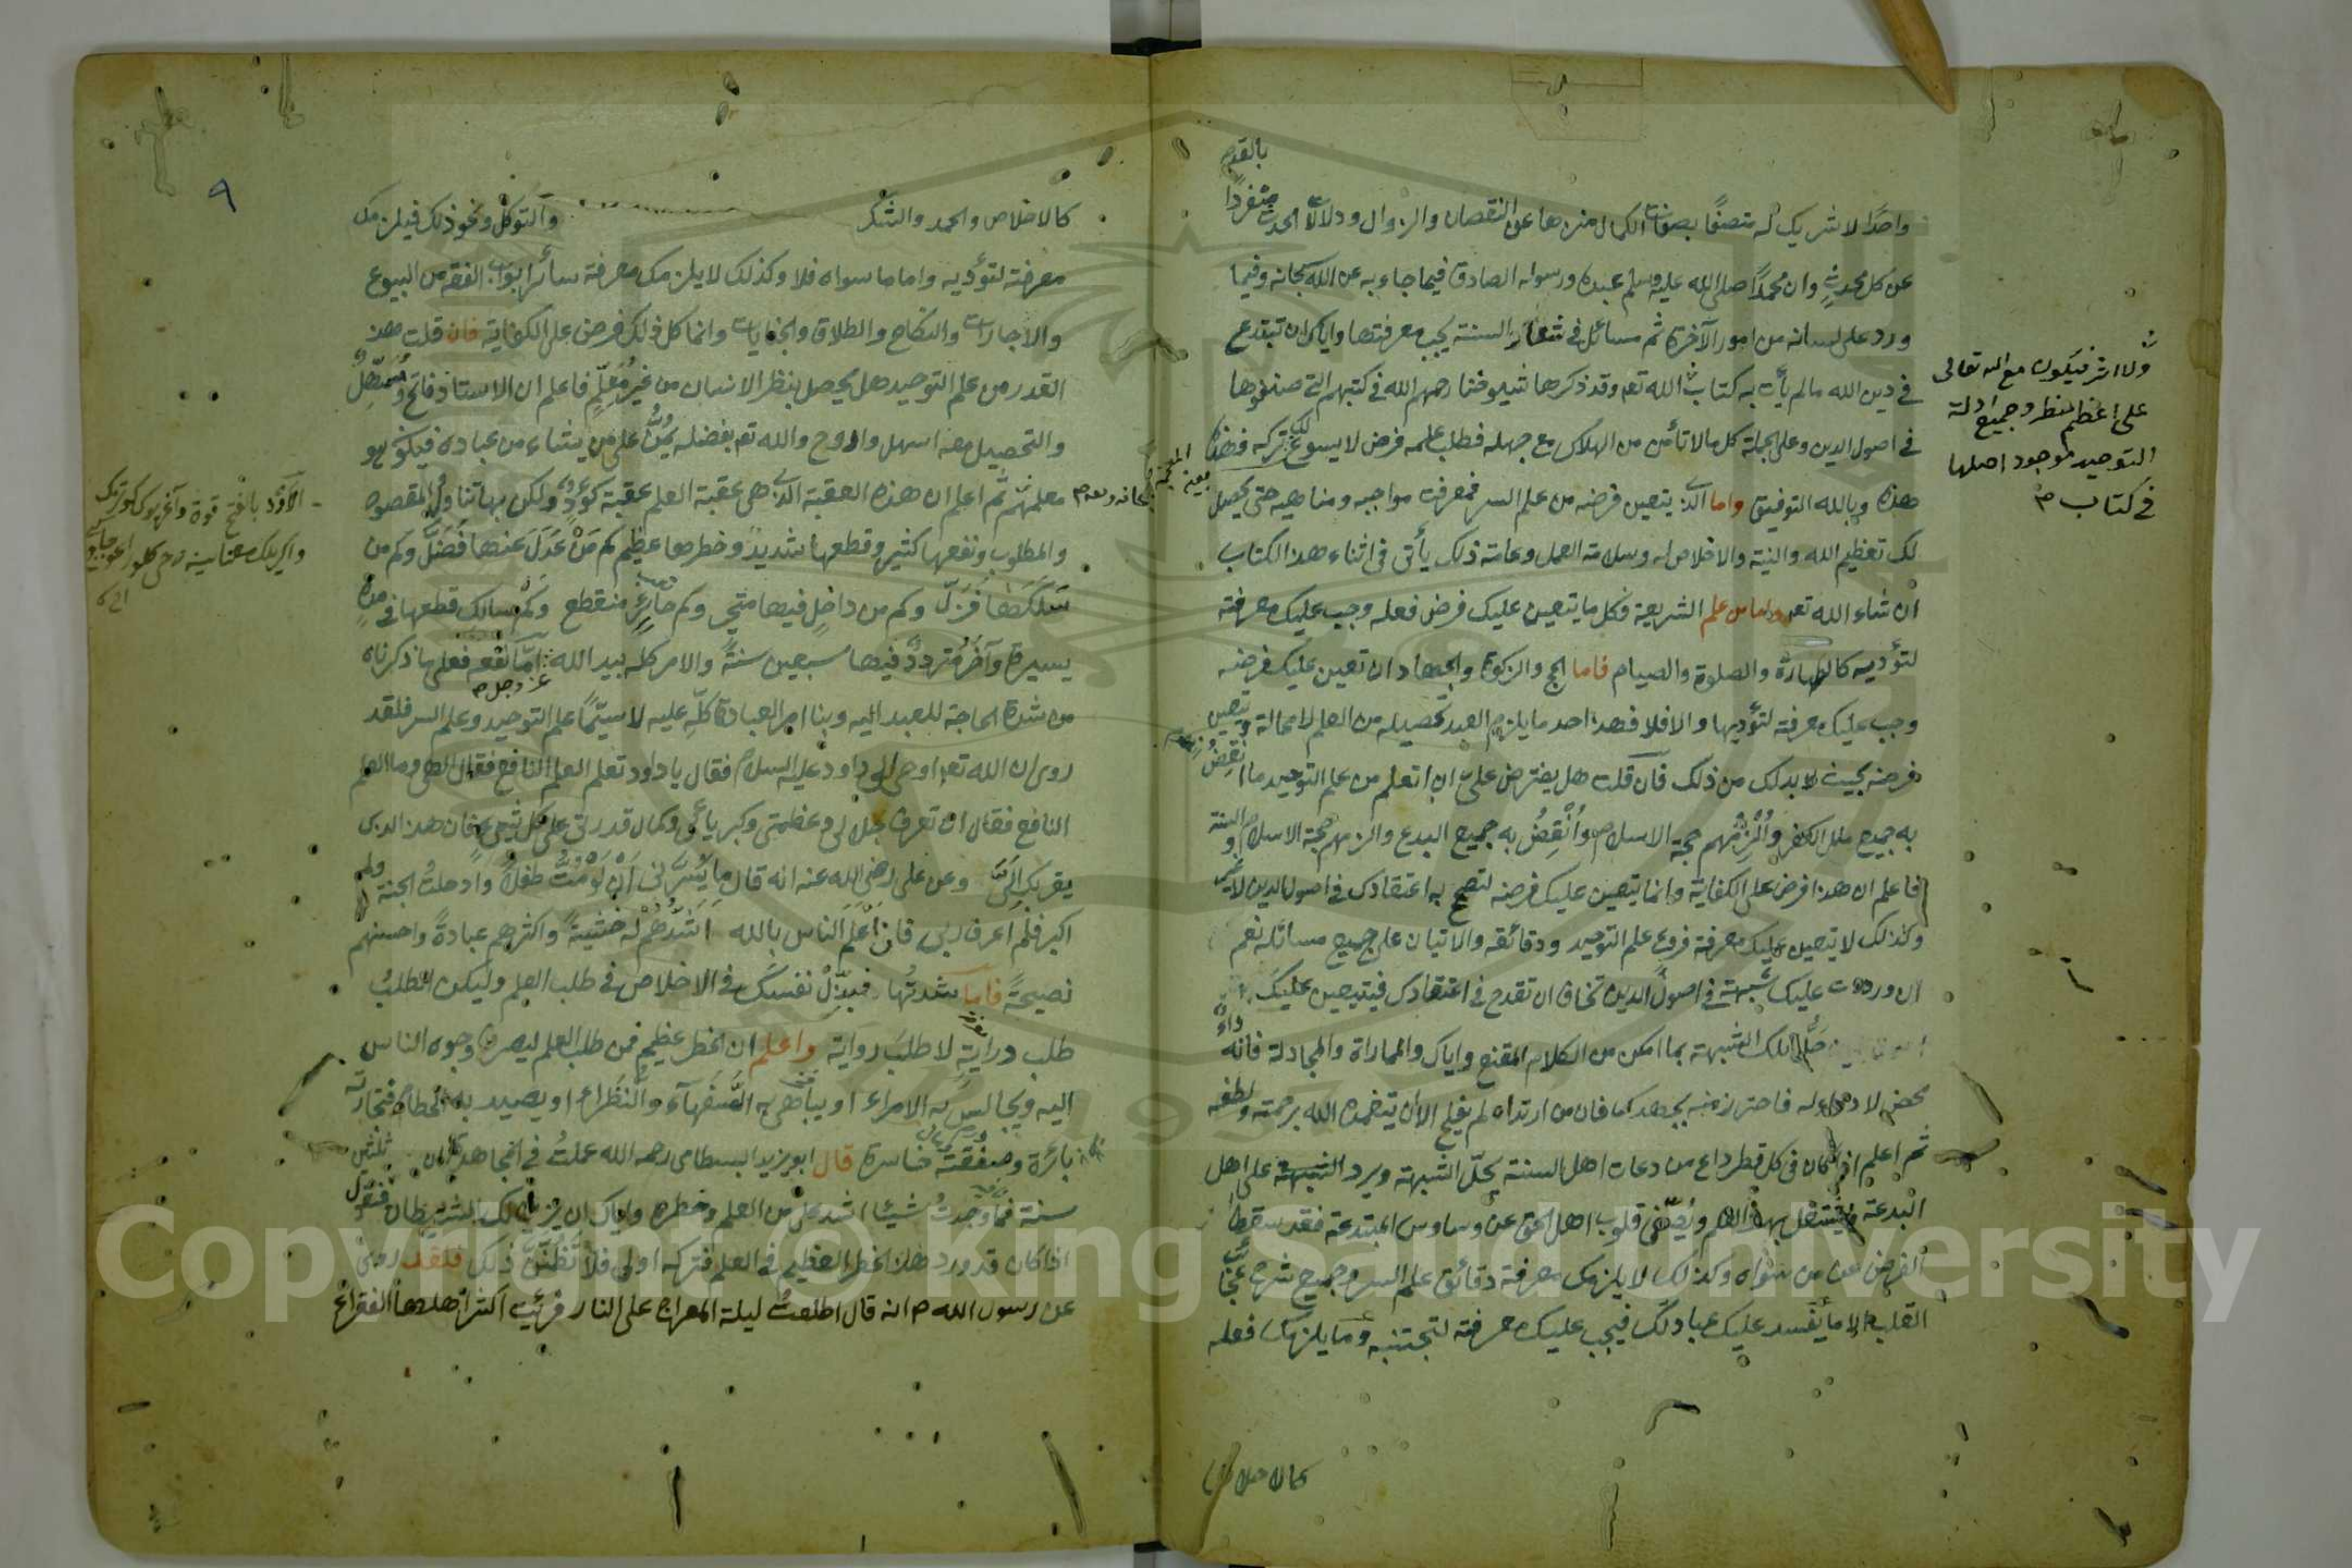 بالقدم
واحدًا لا شريك له متصفًا بصفات الكمال منزها عن النقصان والزوال ودلالات الحدث متفردًا
عن كل محدث وان محمدًا صلى الله عليه وسلم عبده ورسوله الصادق فيما جاء به عن الله سبحانه وفيما
ورد على لسانه من امور الآخرة ثم مسائل في شعار السنة يجب معرفتها واياك ان تبتدع
في دين الله ما لم يأت به كتاب الله تعـ وقد ذكرها شيوخنا رحمهم الله في كتبهم التي صنفوها
في اصول الدين وعلى الجملة كل ما لا تأمن من الهلاك مع جهله فطلب علمه فرض لا يسوغ لك تركه فهذا
هذه وبالله التوفيق واما الذي يتعين فرضه من علم السر فمعرفة مواجبه ومناهيه حتى يحصل
لك تعظيم الله والنية والاخلاص له وسلامة العمل وعامة ذلك يأتى في اثناء هذا الكتاب
ان شاء الله تعـ واما من علم الشريعة فكل ما يتعين عليك فرض فعله وجب عليك معرفته
لتؤديه كالطهارة والصلوة والصيام فاما الحج والزكوة والجهاد ان تعين عليك فرضه
وجب عليك معرفة لتؤديها والا فلا فهذا حد ما يلزم العبد تحصيله من العلم لا محالة وتعين
فرضه بحيث لا بد لك من ذلك فان قلت هل يفترض علي ان اتعلم من علم التوحيد ما انقض
به جميع ملل الكفر وألزمهم حجة الاسلام وأنقض به جميع البدع والزمهم حجة الاسلام والسنة
فاعلم ان هذا فرض على الكفاية وانما يتعين عليك فرضه لتصح به اعتقادك في اصول الدين لا غير
وكذلك لا يتعين عليك معرفة فروع علم التوحيد ودقائقه والاتيان على جميع مسائله نعم
ان وردت عليك شبهة في اصول الدين تخاف ان تقدح في اعتقادك فيتعين عليك
حل تلك الشبهة بما امكن من الكلام المقنع واياك والمماراة والمجادلة فانه داء
محض لا دواء له فاحترز منه بجهدك فان من ارتداه لم يفلح الا ان يتغمده الله برحمته ولطفه
ثم اعلم اذا كان في كل قطر داع من دعاة اهل السنة يحل الشبهة ويرد الشبهة على اهل
البدعة ويشتغل بهذا العلم ويصفي قلوب اهل الحق عن وساوس المبتدعة فقد سقط
الفرض عن من سواه وكذلك لا يلزمك معرفة دقائق علم السر وجميع شرح عجائب
القلب الا ما يفسد عليك عبادتك فيجب عليك معرفته لتجتنبه وما يلزمك فعله
كالاخلاص
ولا اثر فيكون مع الله تعالى
على اعظم نظر وجميع ادلة
التوحيد موجود اصلها
في كتاب
كالاخلاص والحمد والشكر والتوكل ونحو ذلك فيلزمك
معرفته لتؤديه واما ما سواه فلا وكذلك لا يلزمك معرفة سائر ابواب الفقه من البيوع
والاجارات والنكاح والطلاق والجنايات وانما كل ذلك فرض على الكفاية فان قلت هذا
القدر من علم التوحيد هل يحصل بنظر الانسان من غير معلم فاعلم ان الاستاذ فاتح ومسهل
والتحصيل معه اسهل واروح والله تعـ بفضله يمن على من يشاء من عباده فيكون هو
معلمهم ثم اعلم ان هذه العقبة التي هي عقبة العلم عقبة كؤود ولكن بها تنال المقصود
والمطلوب ونفعها كثير وقطعها شديد وخطرها عظيم كم من عدل عنها فضل وكم من
سلكها فزل وكم من داخل فيها متحير وكم حائر منقطع وكم سالك قطعها في مدة
يسيرة وآخر متردد فيها سبعين سنة والامر كله بيد الله عز وجل اما نفعه فعلى ما ذكرناه
من شدة الحاجة للعبد اليه وبناء امر العبادة كله عليه لا سيما علم التوحيد وعلم السر فلقد
روى ان الله تعـ اوحى الى داود عليه السلام فقال يا داود تعلم العلم النافع فقال الهي وما العلم
النافع فقال ان تعرف جلالي وعظمتي وكبريائي وكمال قدرتي على كل شيء فان هذا الذي
يقربك الي وعن علي رضي الله عنه انه قال ما يسرني ان لو مت طفلاً وادخلت الجنة ولم
اكبر فلم اعرف ربي فان اعلم الناس بالله اشدهم له خشية واكثرهم عبادة واحسنهم
نصيحة فاما شدتها فبذل نفسك في الاخلاص في طلب العلم وليكن الطلب
طلب دراية لا طلب رواية واعلم ان الخطر عظيم فمن طلب العلم ليصرف وجوه الناس
اليه ويجالس به الامراء او يباهي به السفهاء والنظراء او يصيد به الحطام فتجارته
بائرة وصفقته خاسرة قال ابو يزيد البسطامى رحمه الله عملت في المجاهدة ثلثين
سنة فما وجدت شيئا اشد علي من العلم وخطره واياك ان يزين لك الشيطان فتقول
اذا كان قد ورد هذا الخطر العظيم في العلم فتركه اولى فلا تظنن ذلك فلقد روي
عن رسول الله م انه قال اطلعت ليلة المعراج على النار فرأيت اكثر اهلها الفقراء
٩
Copyright © King Saud University
1957